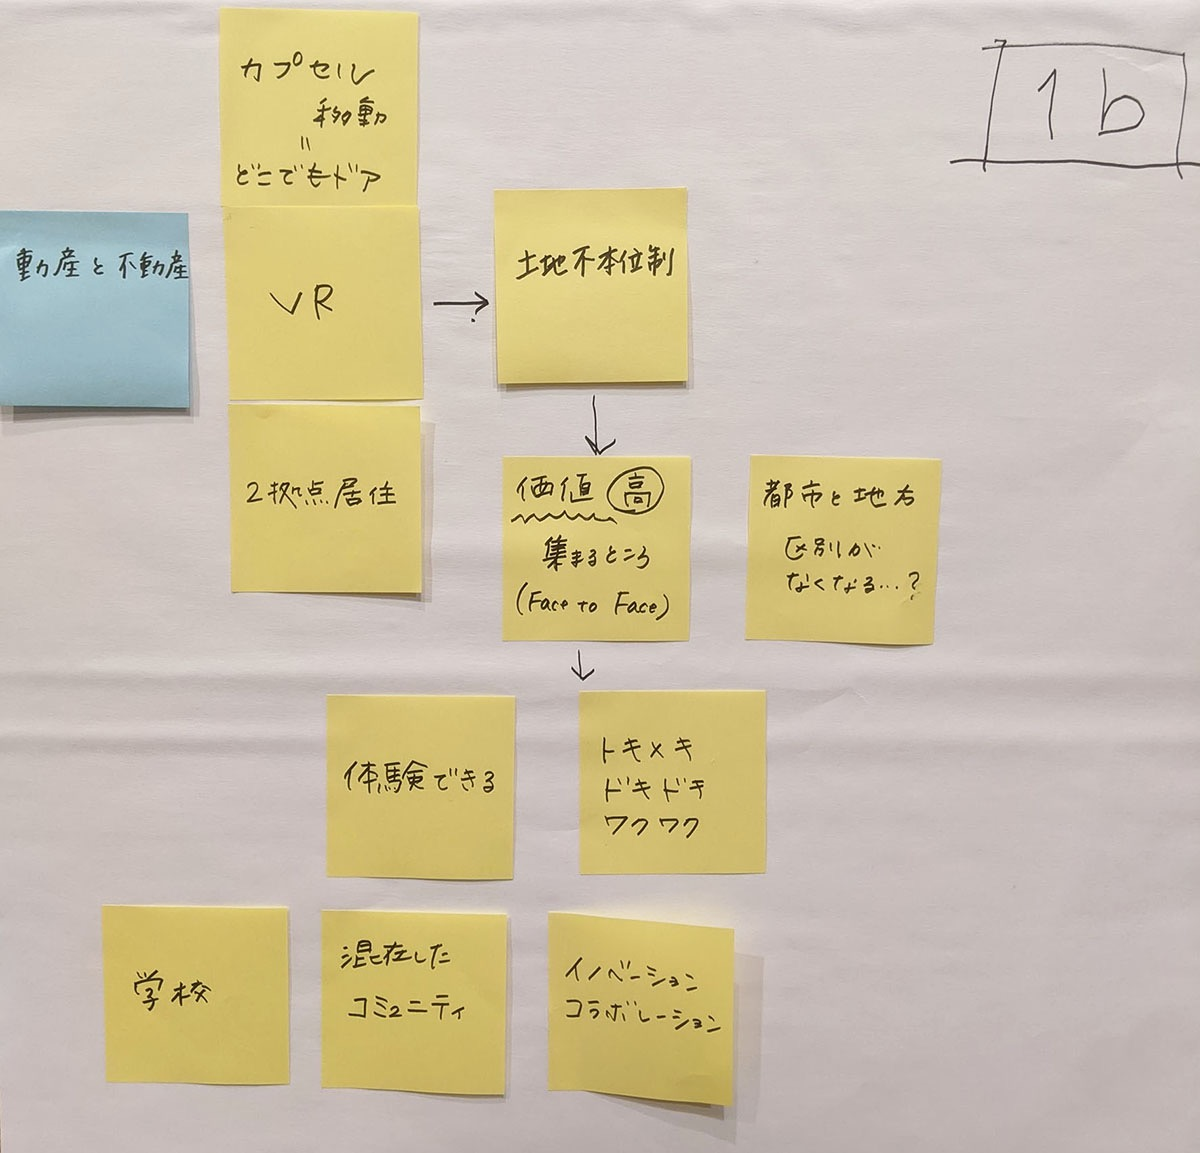 1b
カプセル
移動
=
どこでもドア
動産と不動産
VR
土地不本位制
2拠点居住
価値 高
集まるところ
(Face to Face)
都市と地方
区別が
なくなる…?
体験できる
トキメキ
ドキドキ
ワクワク
学校
混在した
コミュニティ
イノベーション
コラボレーション